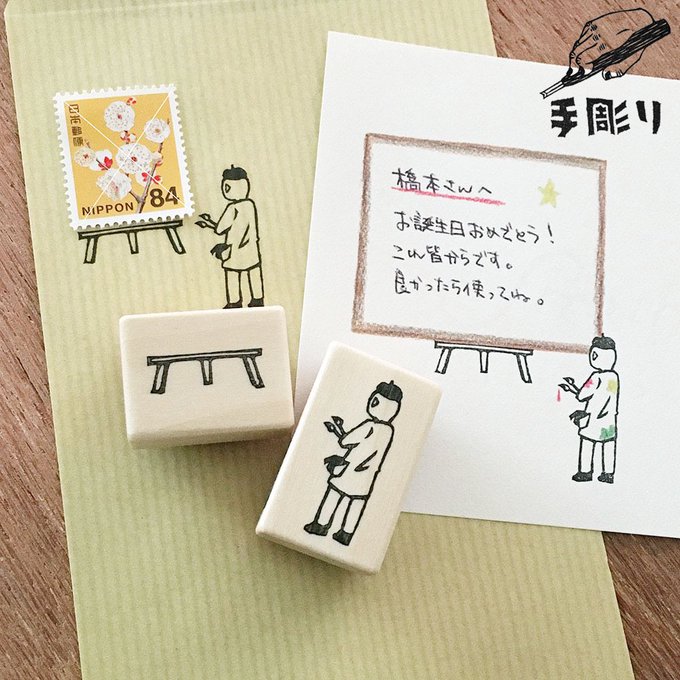 手彫り
日本郵便
NIPPON 84
橋本さんへ
お誕生日おめでとう!
これ皆からです。
良かったら使ってね。